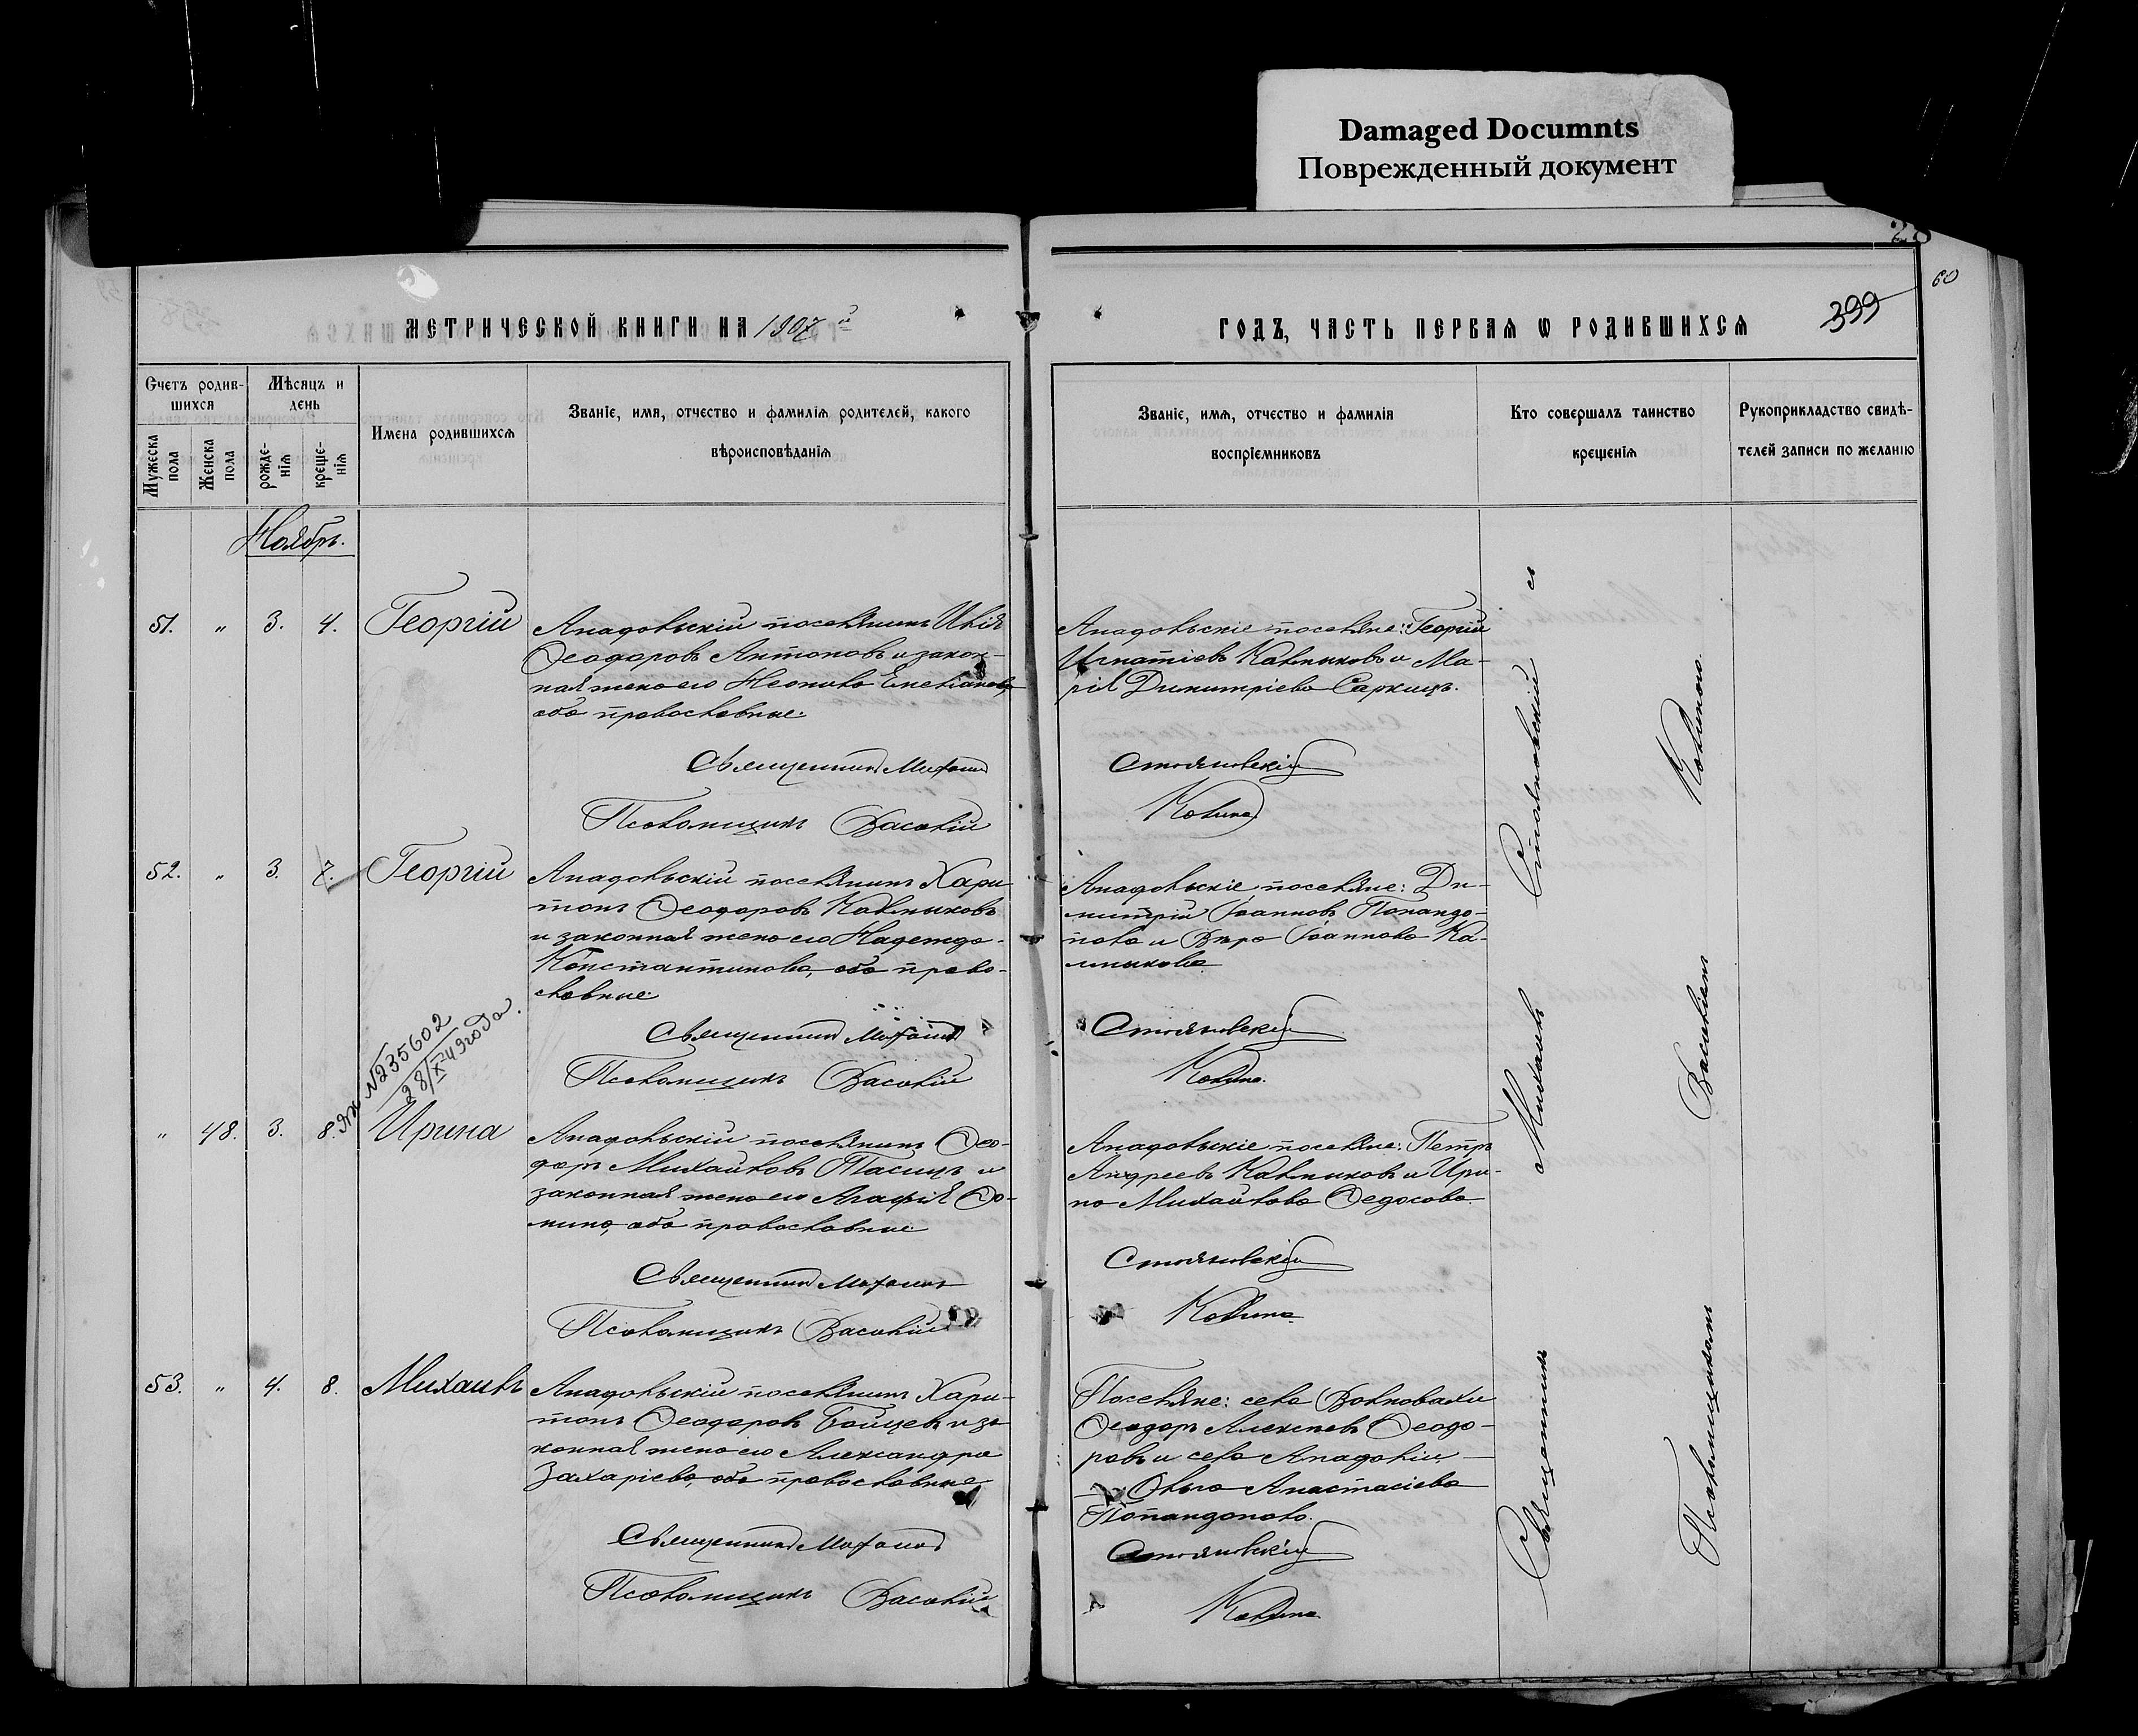 Damaged Documnts
Поврежденный документ
28
60
399
МЕТРИЧЕСКОЙ КНИГИ НА 1907 й
ГОДЪ, ЧАСТЬ ПЕРВАЯ Ѡ РОДИВШИХСЯ
Счетъ родив-
шихся
Мужеска пола
Женска пола
Мѣсяцъ и
день
рожде-
нія
креще-
нія
Имена родившихся
Званіе, имя, отчество и фамилія родителей, какого
вѣроисповѣданія
Званіе, имя, отчество и фамилія
воспріемниковъ
Кто совершалъ таинство
крещенія
Рукоприкладство свидѣ-
телей записи по желанію
Ноябрь.
51. " 3. 4. Георгій
Анадольскій поселянинъ Илія
Ѳеодоровъ Антоновъ и закон-
ная жена его
оба православные.
Священникъ Михаилъ
Псаломщикъ Василій
Анадольскіе поселяне: Георгій
Игнатіевъ Калмыковъ и Ма-
рія Димитріева Саркицъ.
Стояновскій
Калина
52. " 3. 7. Георгій
Анадольскій поселянинъ Хари-
тонъ Ѳеодоровъ Калмыковъ
и законная жена его Надежда
Константинова, оба право-
славные.
Священникъ Михаилъ
Псаломщикъ Василій
Анадольскіе поселяне: Ди-
митрій Іоанновъ Попандо-
поло и Вѣра Іоаннова Ка-
лмыкова
Стояновскій
Калина.
№235602
28/X 49 года.
" 48. 3. 8. Ирина
Анадольскій поселянинъ Ѳео-
доръ Михайловъ Тасицъ и
законная жена его Агафія Ѳо-
мина, оба православные
Священникъ Михаилъ
Псаломщикъ Василій
Анадольскіе поселяне: Петръ
Андреевъ Калмыковъ и Ири-
на Михайлова Ѳедосова
Стояновскій
Калина
53. " 4. 8. Михаилъ
Анадольскій поселянинъ Хари-
тонъ Ѳеодоровъ Бойцевъ и за-
конная жена его Александра
Захаріева, оба православные
Священникъ Михаилъ
Псаломщикъ Василій
Поселяне: села Волновахи
Ѳеодоръ Алексѣевъ Ѳеодо-
ровъ и села Анадоліи
Ольга Анастасіева
Попандополо.
Стояновскій
Калина
Священникъ Михаилъ Стояновскій съ
Псаломщикомъ Василіемъ Калиною.